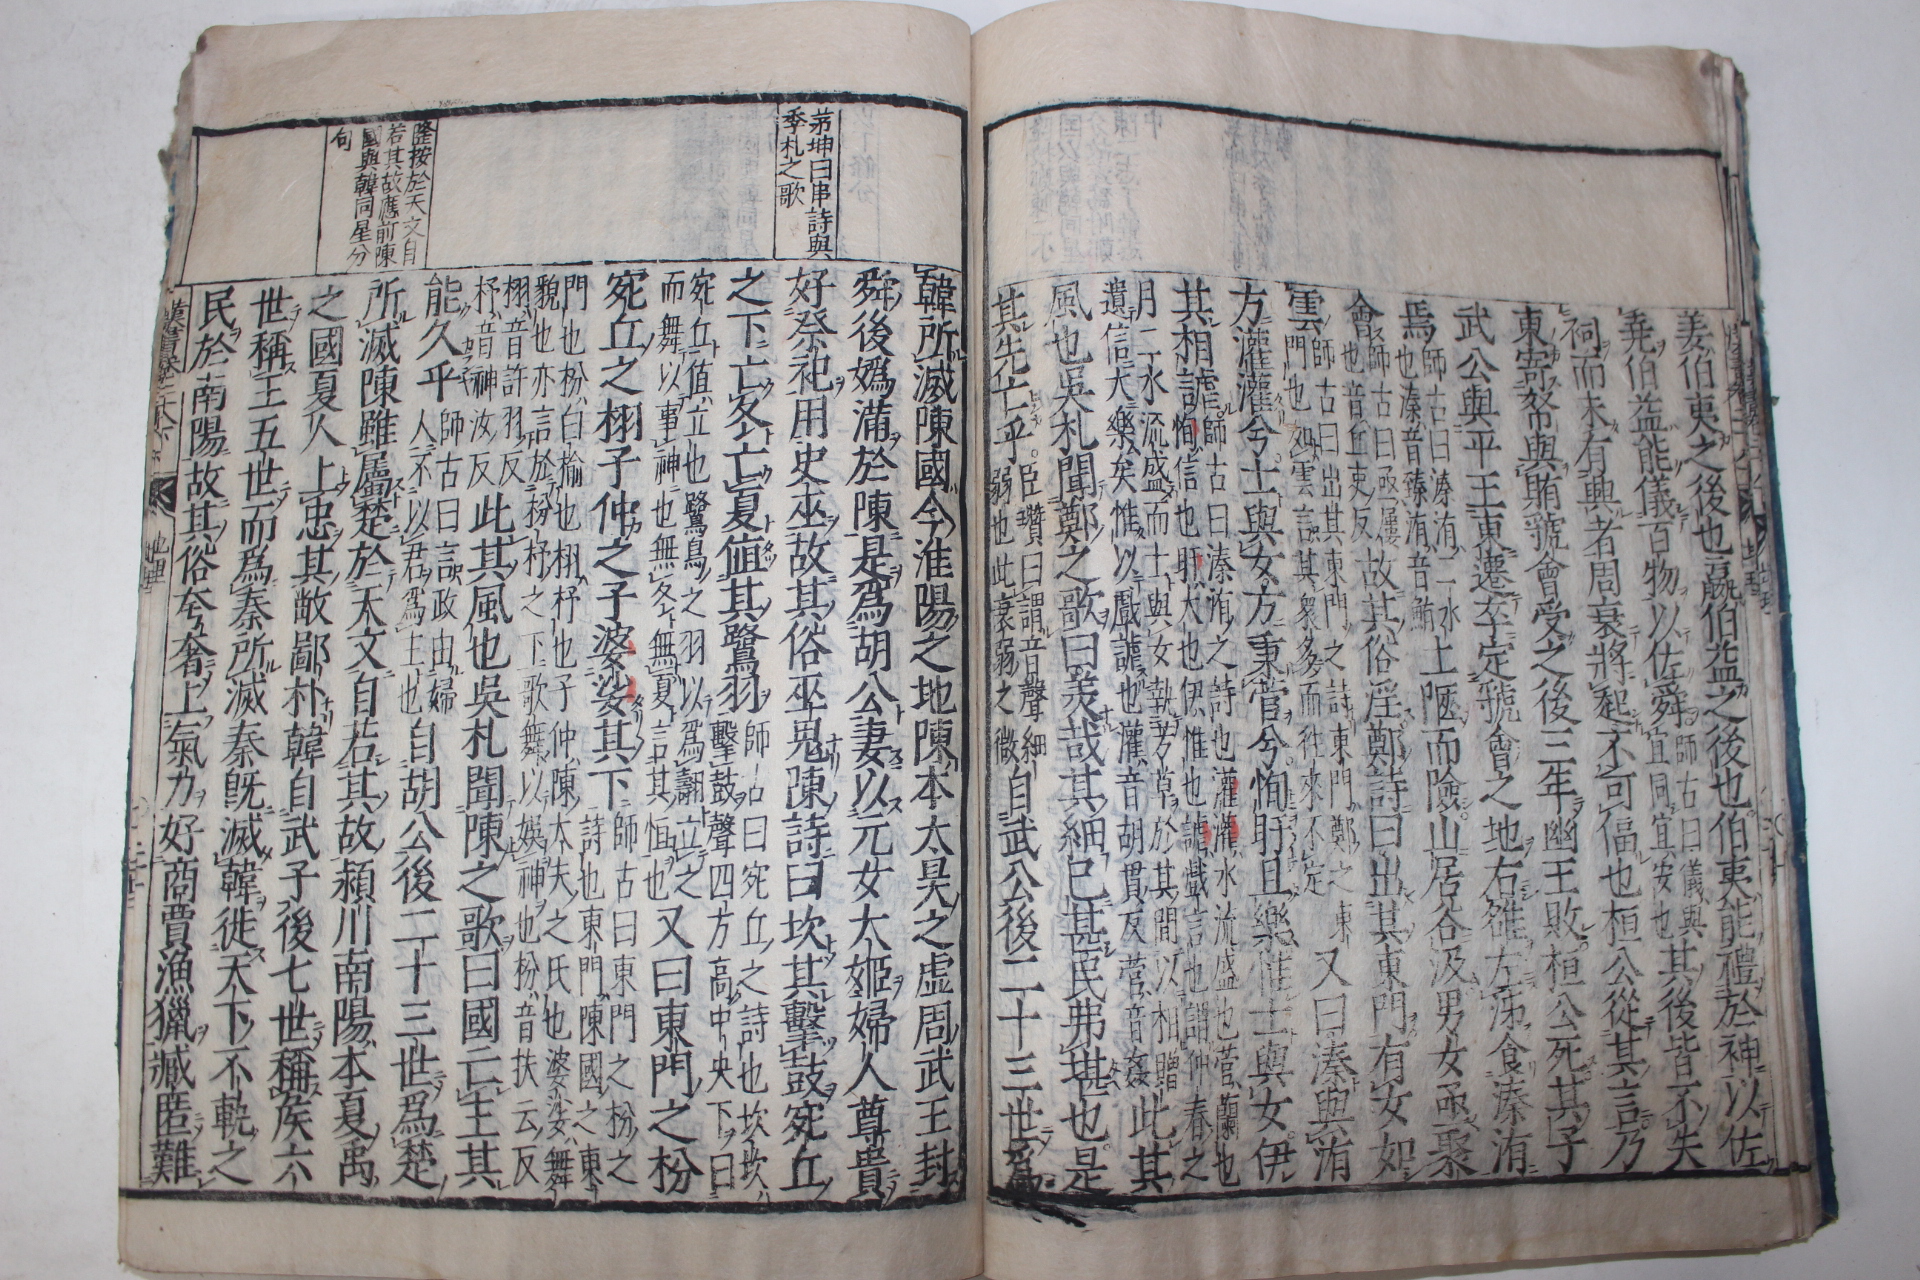 姜伯夷之後也言嬴伯益之後也伯夷能禮於神以佐
堯伯益能儀百物以佐舜師古曰儀與宜同宜安也其後皆不失
祠而未有興者周衰將起不可偪也桓公從其言乃
東寄帑與賄虢會受之後三年幽王敗桓公死其子
武公與平王東遷卒定虢會之地右雒左泲食溱洧
焉師古曰溱洧二水也溱音臻洧音鮪土陿而險山居谷汲男女亟聚
會師古曰亟屢也音丘吏反故其俗淫鄭詩曰出其東門有女如
雲師古曰出其東門之詩東門鄭之東門也如雲言其衆多而往來不定又曰溱與洧
方灌灌兮士與女方秉菅兮恂盱且樂惟士與女伊
其相謔師古曰溱洧之詩也灌灌水流盛也菅蘭也恂信也盱大也伊惟也謔戲言也謂仲春之
月二水流盛而士與女執芳草於其間以相贈遺信大樂矣惟以戲謔也灌音胡貫反菅音姦此其
風也吳札聞鄭之歌曰美哉其細已甚民弗堪也是
其先亡乎臣瓚曰謂音聲細弱也此衰弱之徵自武公後二十三世爲
茅坤曰串詩與
季札之歌
韓所滅陳國今淮陽之地陳本太昊之虛周武王封
舜後嬀滿於陳是爲胡公妻以元女大姬婦人尊貴
好祭祀用史巫故其俗巫鬼陳詩曰坎其擊鼓宛丘
之下亡冬亡夏値其鷺羽師古曰宛丘之詩也坎坎擊鼓聲四方高中央下曰
宛丘値立也鷺鳥之羽以爲翿立之而舞以事神也無冬無夏言其恒也又曰東門之枌
宛丘之栩子仲之子婆娑其下師古曰東門之枌之詩也東門陳國之東
門也枌白榆也栩杼也子仲陳大夫之氏也婆娑舞貌也亦言於枌杼之下歌舞以娛神也枌音扶云反
栩音許羽反杼音神汝反此其風也吳札聞陳之歌曰國亡主其
能久乎師古曰言政由婦人不以君爲主也自胡公後二十三世爲楚
隆按於天文自
若其故應前陳
國與韓同星分
句
所滅陳雖屬楚於天文自若其故潁川南陽本夏禹
之國夏人上忠其敝鄙朴韓自武子後七世稱侯六
世稱王五世而爲秦所滅秦既滅韓徙天下不軌之
民於南陽故其俗夸奢上氣力好商賈漁獵藏匿難